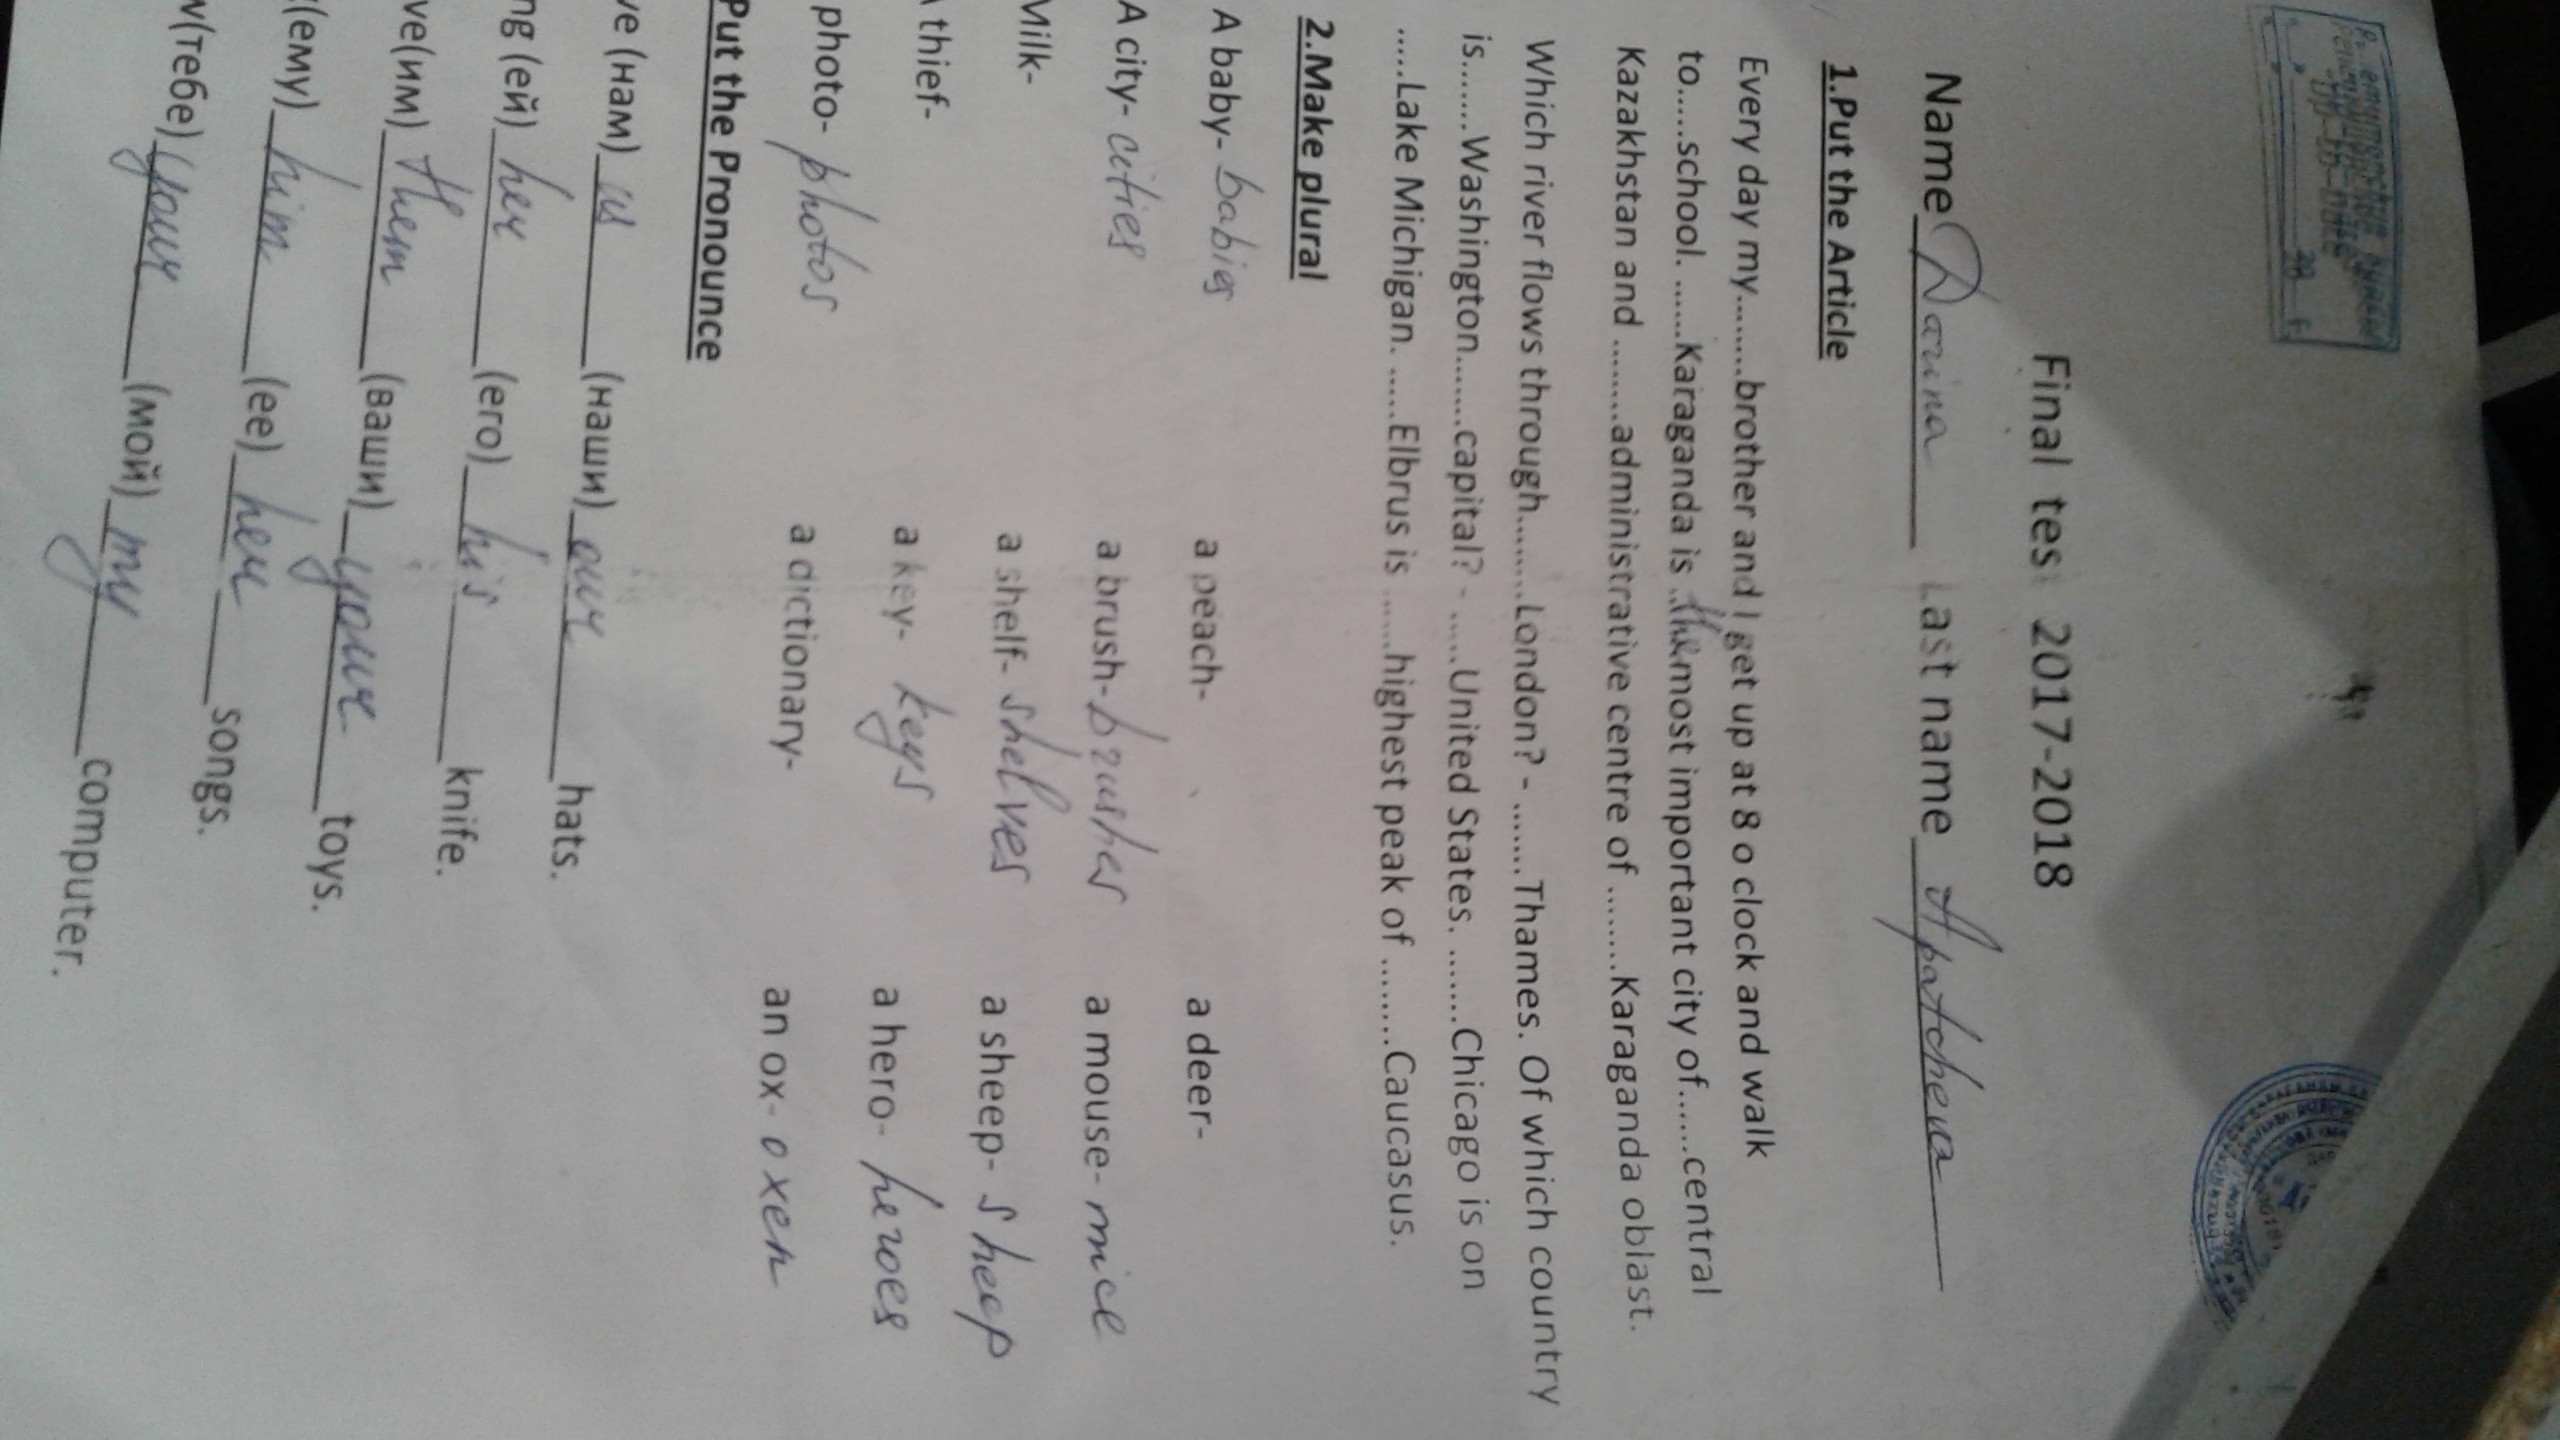 Final test 2017-2018
Name Darina Last name Apatcheva
1.Put the Article
Every day my.........brother and I get up at 8 o clock and walk
to......school. .......Karaganda is ..the most important city of......central
Kazakhstan and .........administrative centre of .........Karaganda oblast.
Which river flows through.........London? - ........Thames. Of which country
is.......Washington.........capital? - ......United States. ........Chicago is on
......Lake Michigan. ......Elbrus is .......highest peak of .........Caucasus.
2.Make plural
A baby- babies a peach- a deer-
A city- cities a brush- brushes a mouse- mice
Milk- a shelf- shelves a sheep- sheep
A thief- a key- keys a hero- heroes
photo- photos a dictionary- an ox- oxen
Put the Pronounce
ve (нам) us (наши) our hats.
ng (ей) her (его) his knife.
ve(им) them (ваши) your toys.
(ему) him (ее) her songs.
w(тебе) your (мой) my computer.